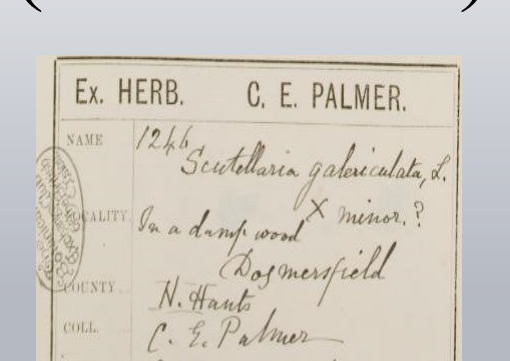 Ex. HERB. C. E. PALMER.
NAME 1246
Scutellaria galericulata, L.
X minor.?
LOCALITY. In a damp wood
Dogmersfield
COUNTY. N. Hants
COLL. C. E. Palmer